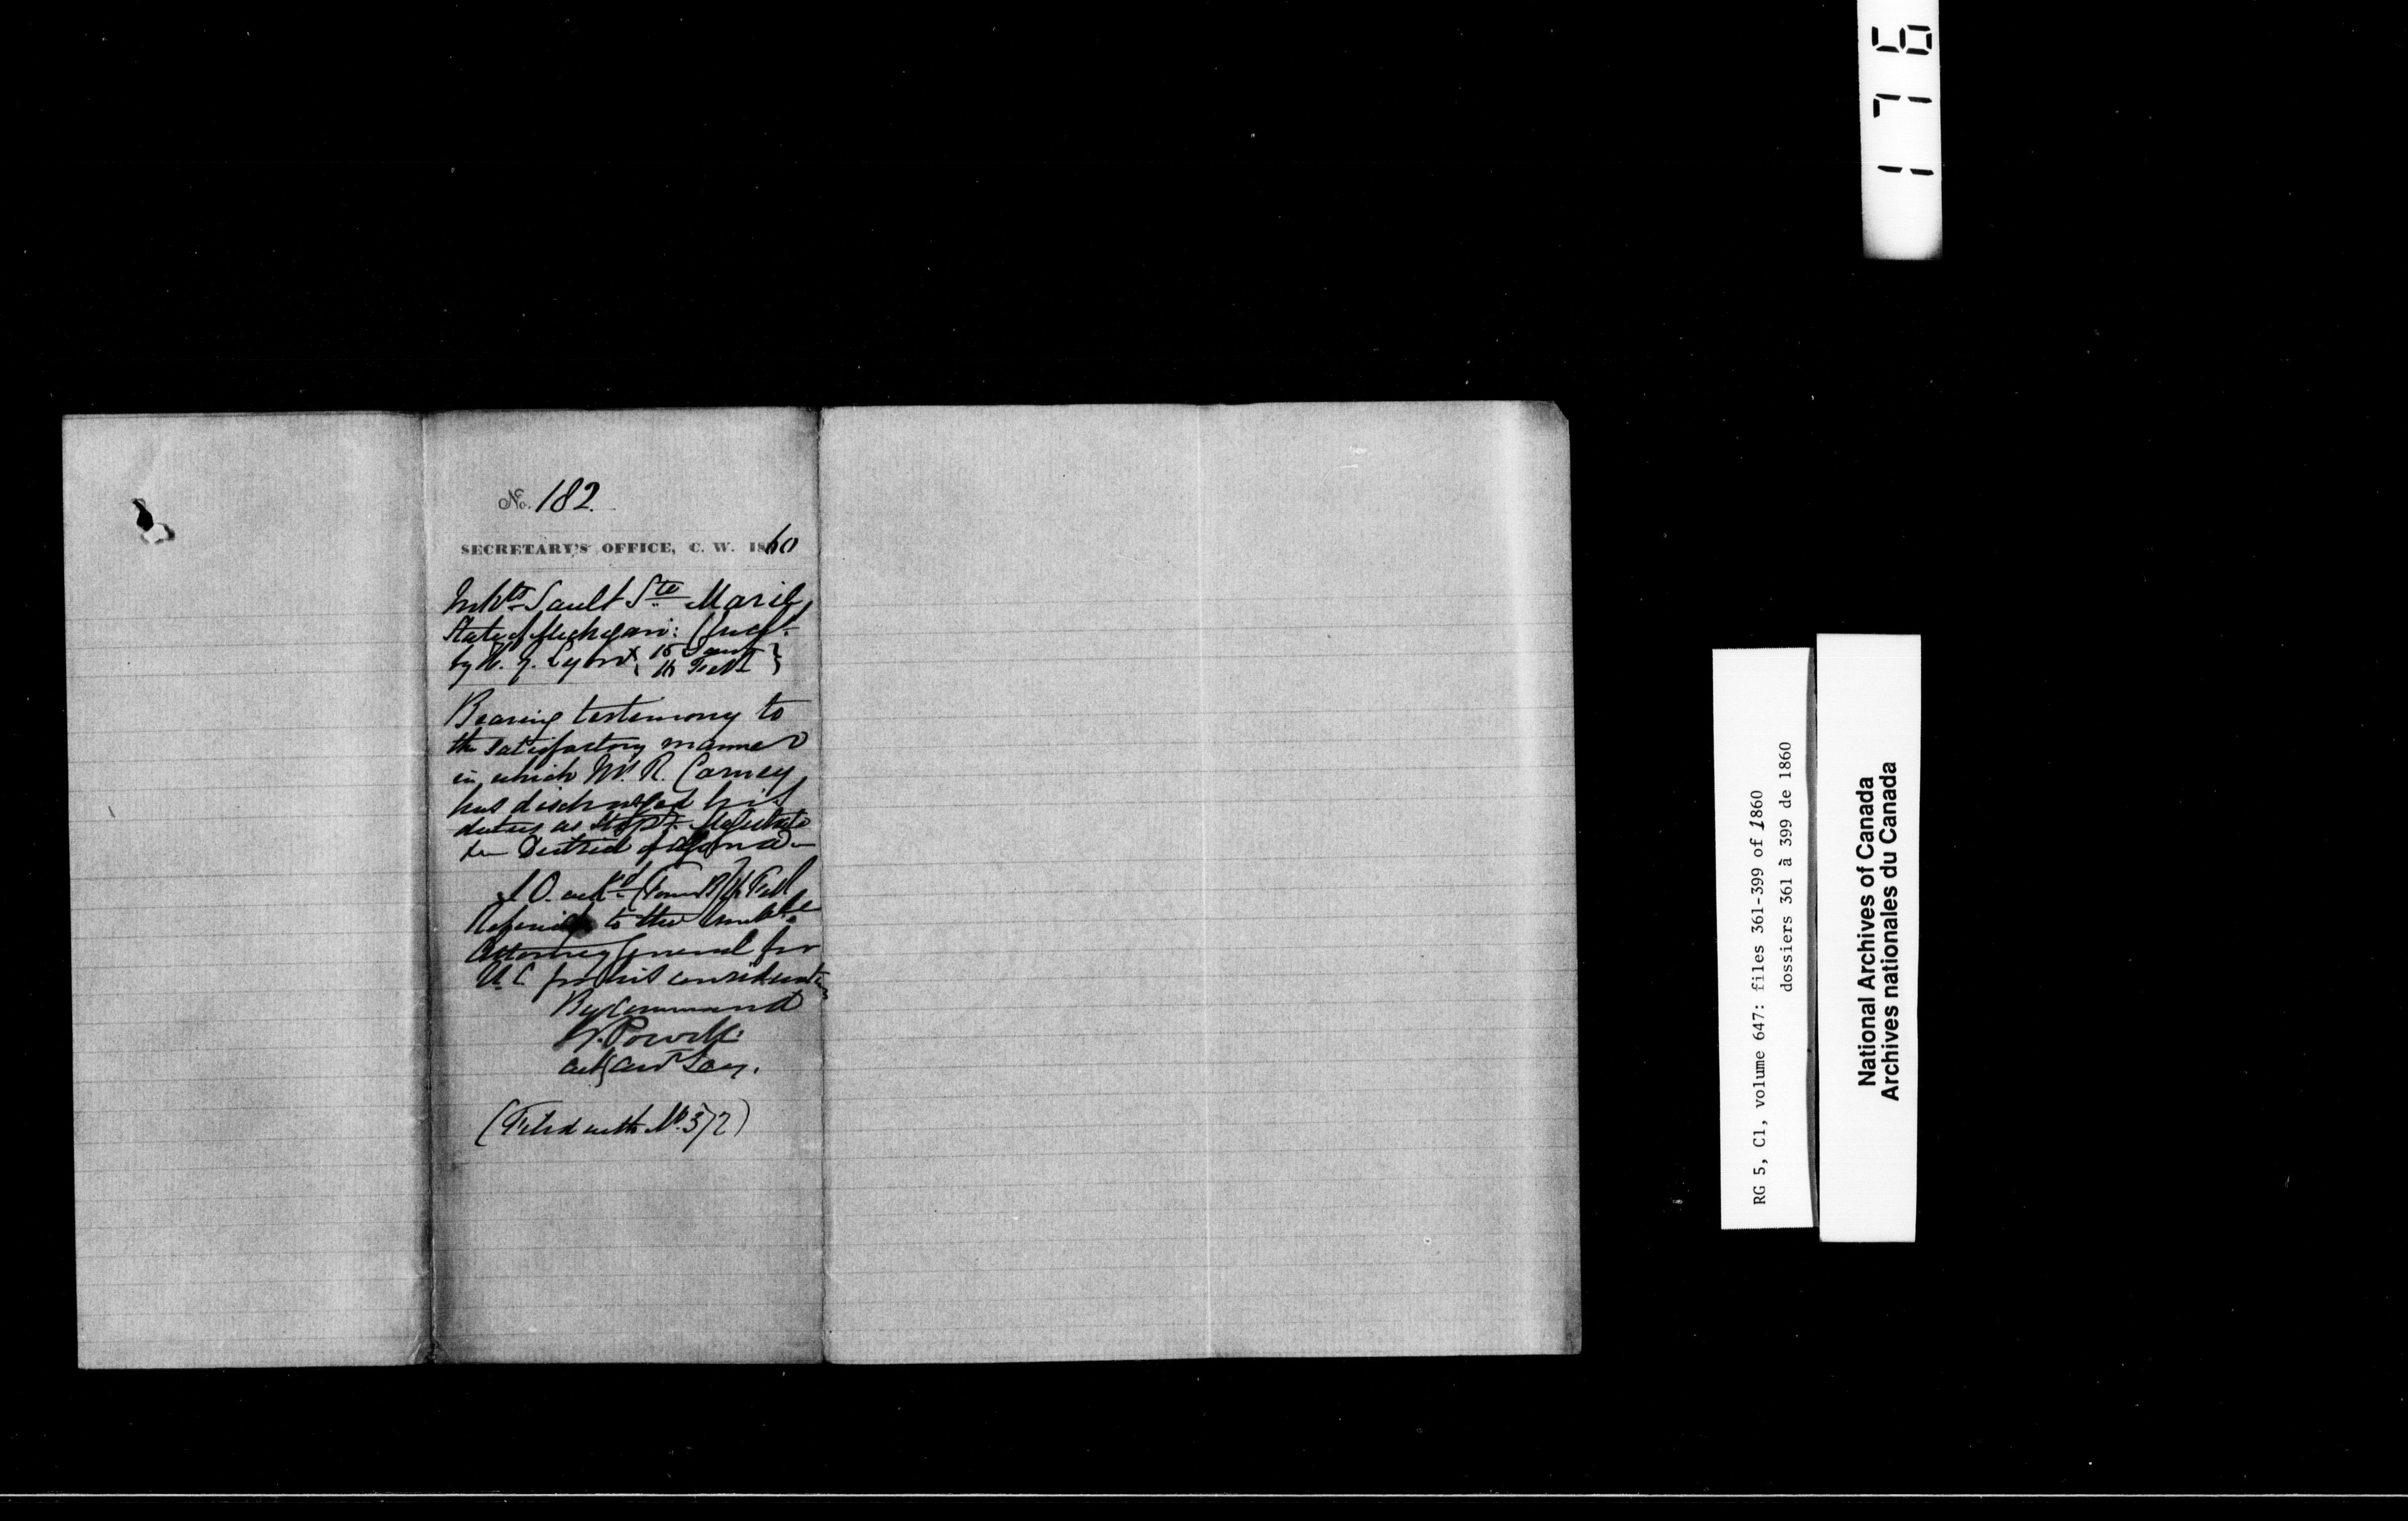 No. 182.
SECRETARY'S OFFICE, C. W. 1860
Inhbts Sault Ste Marie,
State of Michigan:
by 15 Jany
16 Feb
Bearing testimony to
the satisfactory manner
in which Mr. R. Carney
has discharged his
duties as Stip. Magistrate
District of Algoma
Feb
Referred to the Honble
Attorney General for
U. C. for his consideratn
By Command
Powell
actg asst Secy.
(Filed with No. 372)
176
RG 5, C1, volume 647: files 361-399 of 1860
dossiers 361 à 399 de 1860
National Archives of Canada
Archives nationales du Canada